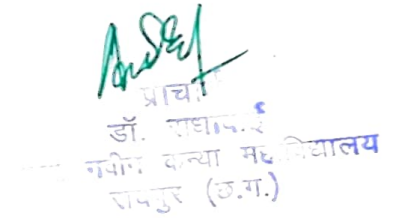 प्राचा
डॉ. राधाबाई
नवीन कन्या महाविद्यालय
रायपुर (छ.ग.)